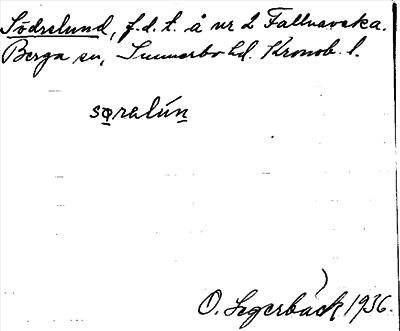 Södralund, f.d. t. å nr 2 Fallnaveka.
Berga sn, Sunnerbo hd. Kronob. l.
sǫralún
O. Segerbäck 1936.